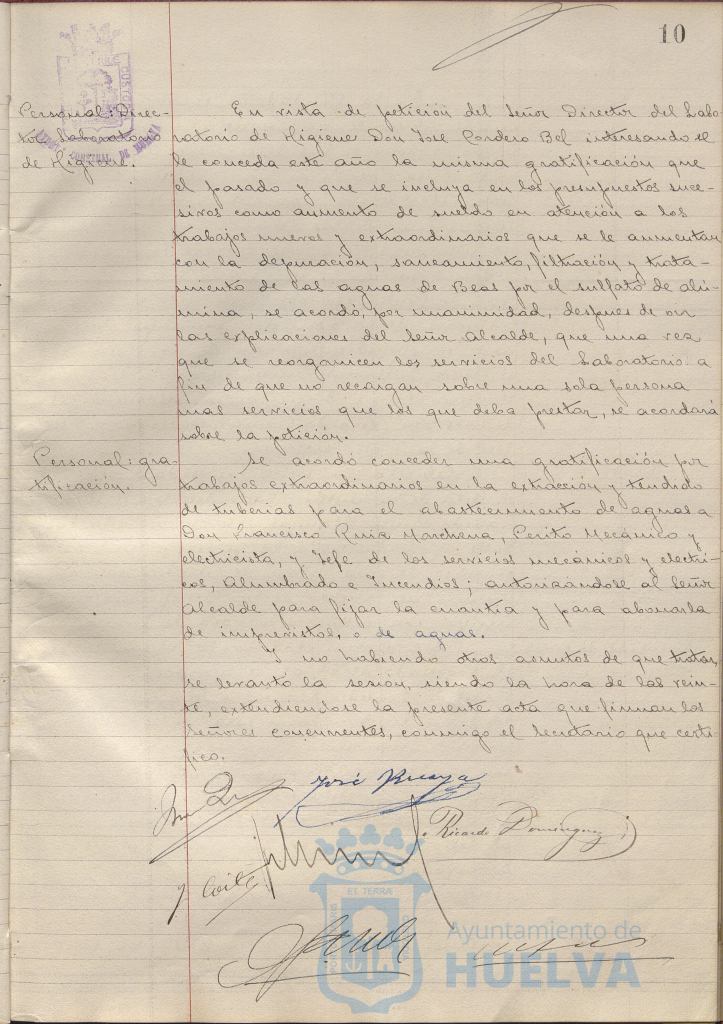 10
Personal: Direc-
tor Laboratorio
de Higiene.
En vista de petición del Señor Director del Labo-
ratorio de Higiene Don Jose Cordero Bel interesando se
le conceda este año la misma gratificación que
el pasado y que se incluya en los presupuestos suce-
sivos como aumento de sueldo en atención a los
trabajos nuevos y extraordinarios que se le aumentan
con la depuración, saneamiento, filtración y trata-
miento de las aguas de Beas por el sulfato de alú-
mina, se acordó, por unanimidad, despues de oir
las explicaciones del Señor Alcalde, que una vez
que se reorganicen los servicios del Laboratorio a
fin de que no recaigan sobre una sola persona
mas servicios que los que deba prestar, se acordará
sobre la petición.
Personal: gra-
tificación.
Se acordó conceder una gratificación por
trabajos extraordinarios en la extracción y tendido
de tuberias para el abastecimiento de aguas a
Don Francisco Ruiz Marchena, Perito Mecánico y
electricista, y Jefe de los servicios mecánicos y electri-
cos, Alumbrado e Incendios; autorizándose al Señor
Alcalde para fijar la cuantia y para abonarla
de imprevistos, o de aguas.
Y no habiendo otros asuntos de que tratar,
se levantó la sesión, siendo la hora de las vein-
te, extendiendose la presente acta que firman los
Señores concurrentes, conmigo el Secretario que certi-
fico.
José
Ricardo Dominguez
Ayuntamiento de
HUELVA